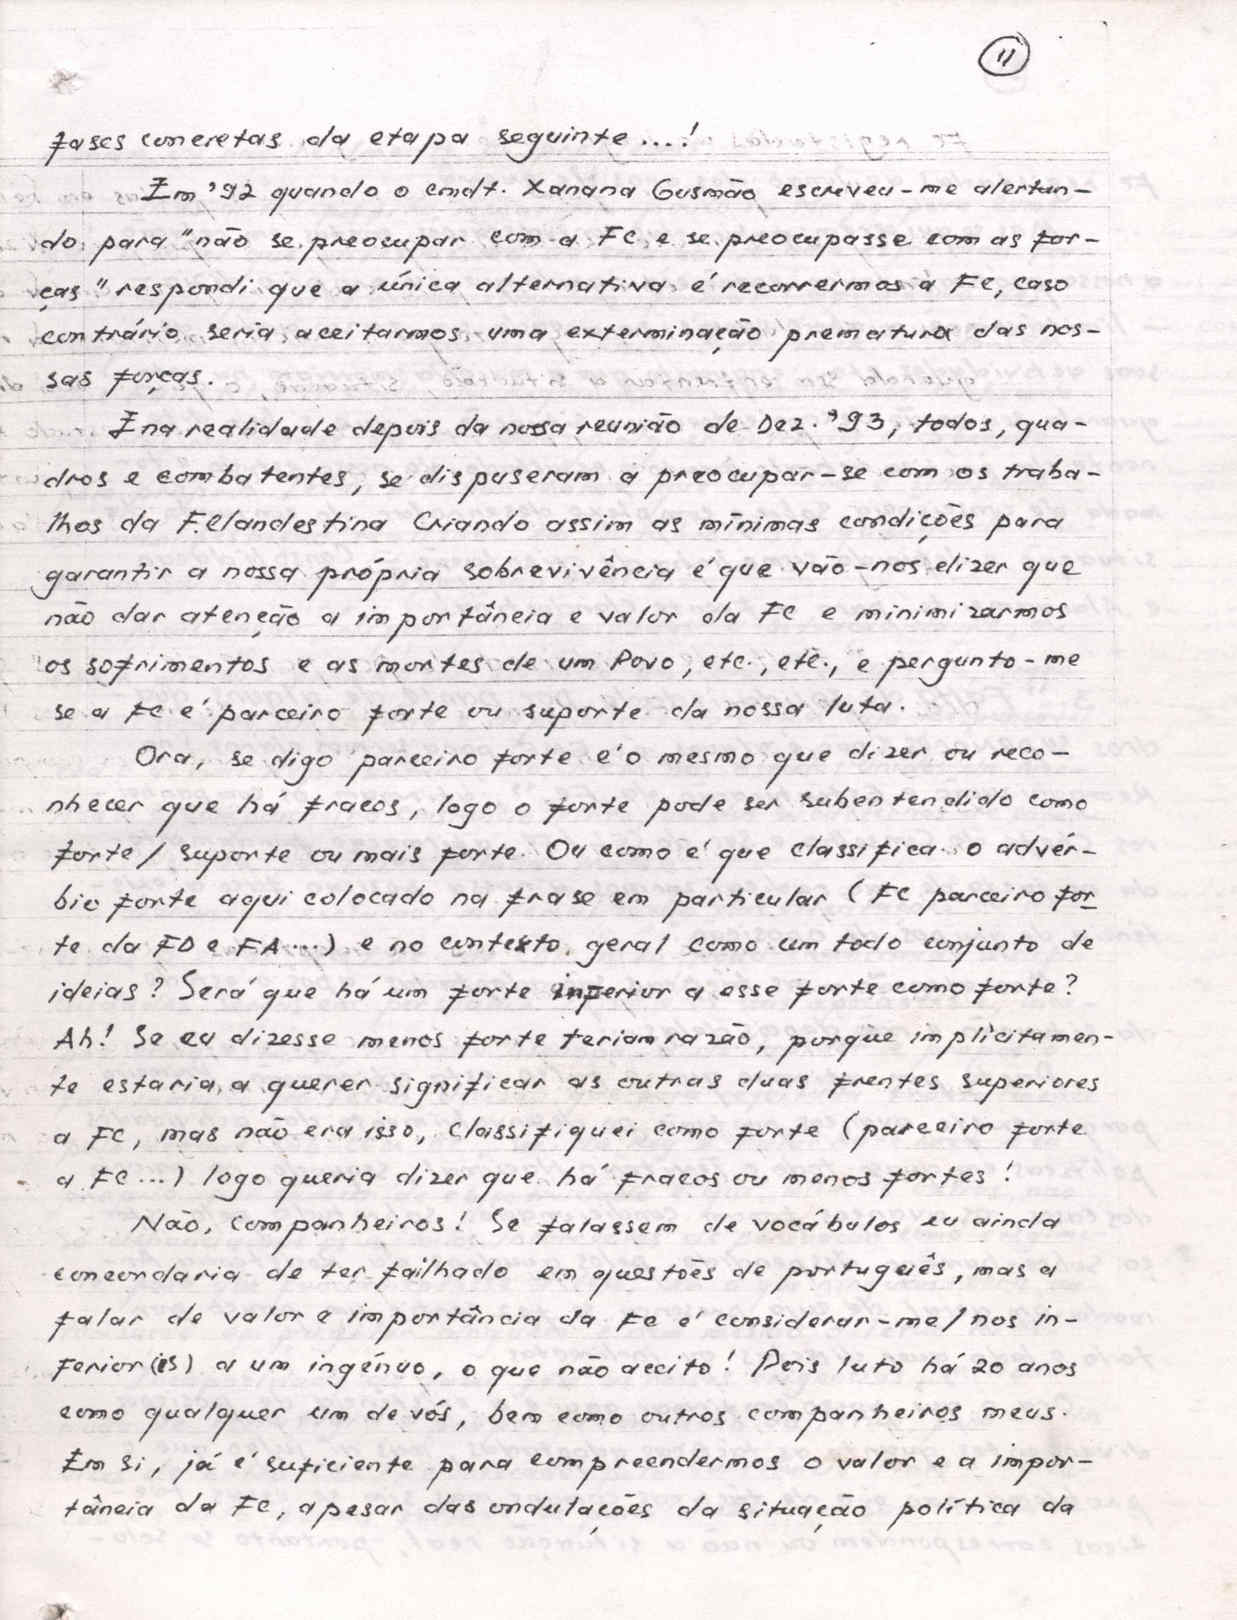 11
fases concretas da etapa seguinte ...!
Em '92 quando o cmdt. Xanana Gusmão escreveu-me alertan-
do para "não se preocupar com a FC e se preocupasse com as for-
ças" respondi que a única alternativa é recorrermos à FC, caso
contrário seria aceitarmos uma exterminação prematura das nos-
sas forças.
E na realidade depois da nossa reunião de Dez. '93, todos, qua-
dros e combatentes, se dispuseram a preocupar-se com os traba-
lhos da F.Clandestina Criando assim as mínimas condições para
garantir a nossa própria sobrevivência é que vão-nos dizer que
não dar atenção a importância e valor da FC e minimizarmos
os sofrimentos e as mortes de um Povo, etc., etc., e pergunto-me
se a FC é parceiro forte ou suporte da nossa luta.
Ora, se digo parceiro forte é o mesmo que dizer ou reco-
nhecer que há fracos, logo o forte pode ser subentendido como
forte/ suporte ou mais forte. Ou como é que classifica o advér-
bio forte aqui colocado na frase em particular (FC parceiro for
te da FD e FA ...) e no contexto geral como um todo conjunto de
ideias? Será que há um forte inferior a esse forte como forte?
Ah! Se eu dizesse menos forte teriam razão, porque implìcitamen-
te estaria a querer significar as outras duas frentes superiores
a FC, mas não era isso, classifiquei como forte (parceiro forte
a FC ...) logo queria dizer que há fracos ou menos fortes!
Não, companheiros! Se falassem de vocábulos eu ainda
concordaria de ter failhado em questões de português, mas a
falar de valor e importância da FC é considerar-me/nos in-
ferior(es) a um ingénuo, o que não aceito! Pois luto há 20 anos
como qualquer um de vós, bem como outros companheiros meus.
Em si, já é suficiente para compreendermos o valor e a impor-
tância da FC, apesar das ondulações da situação política da